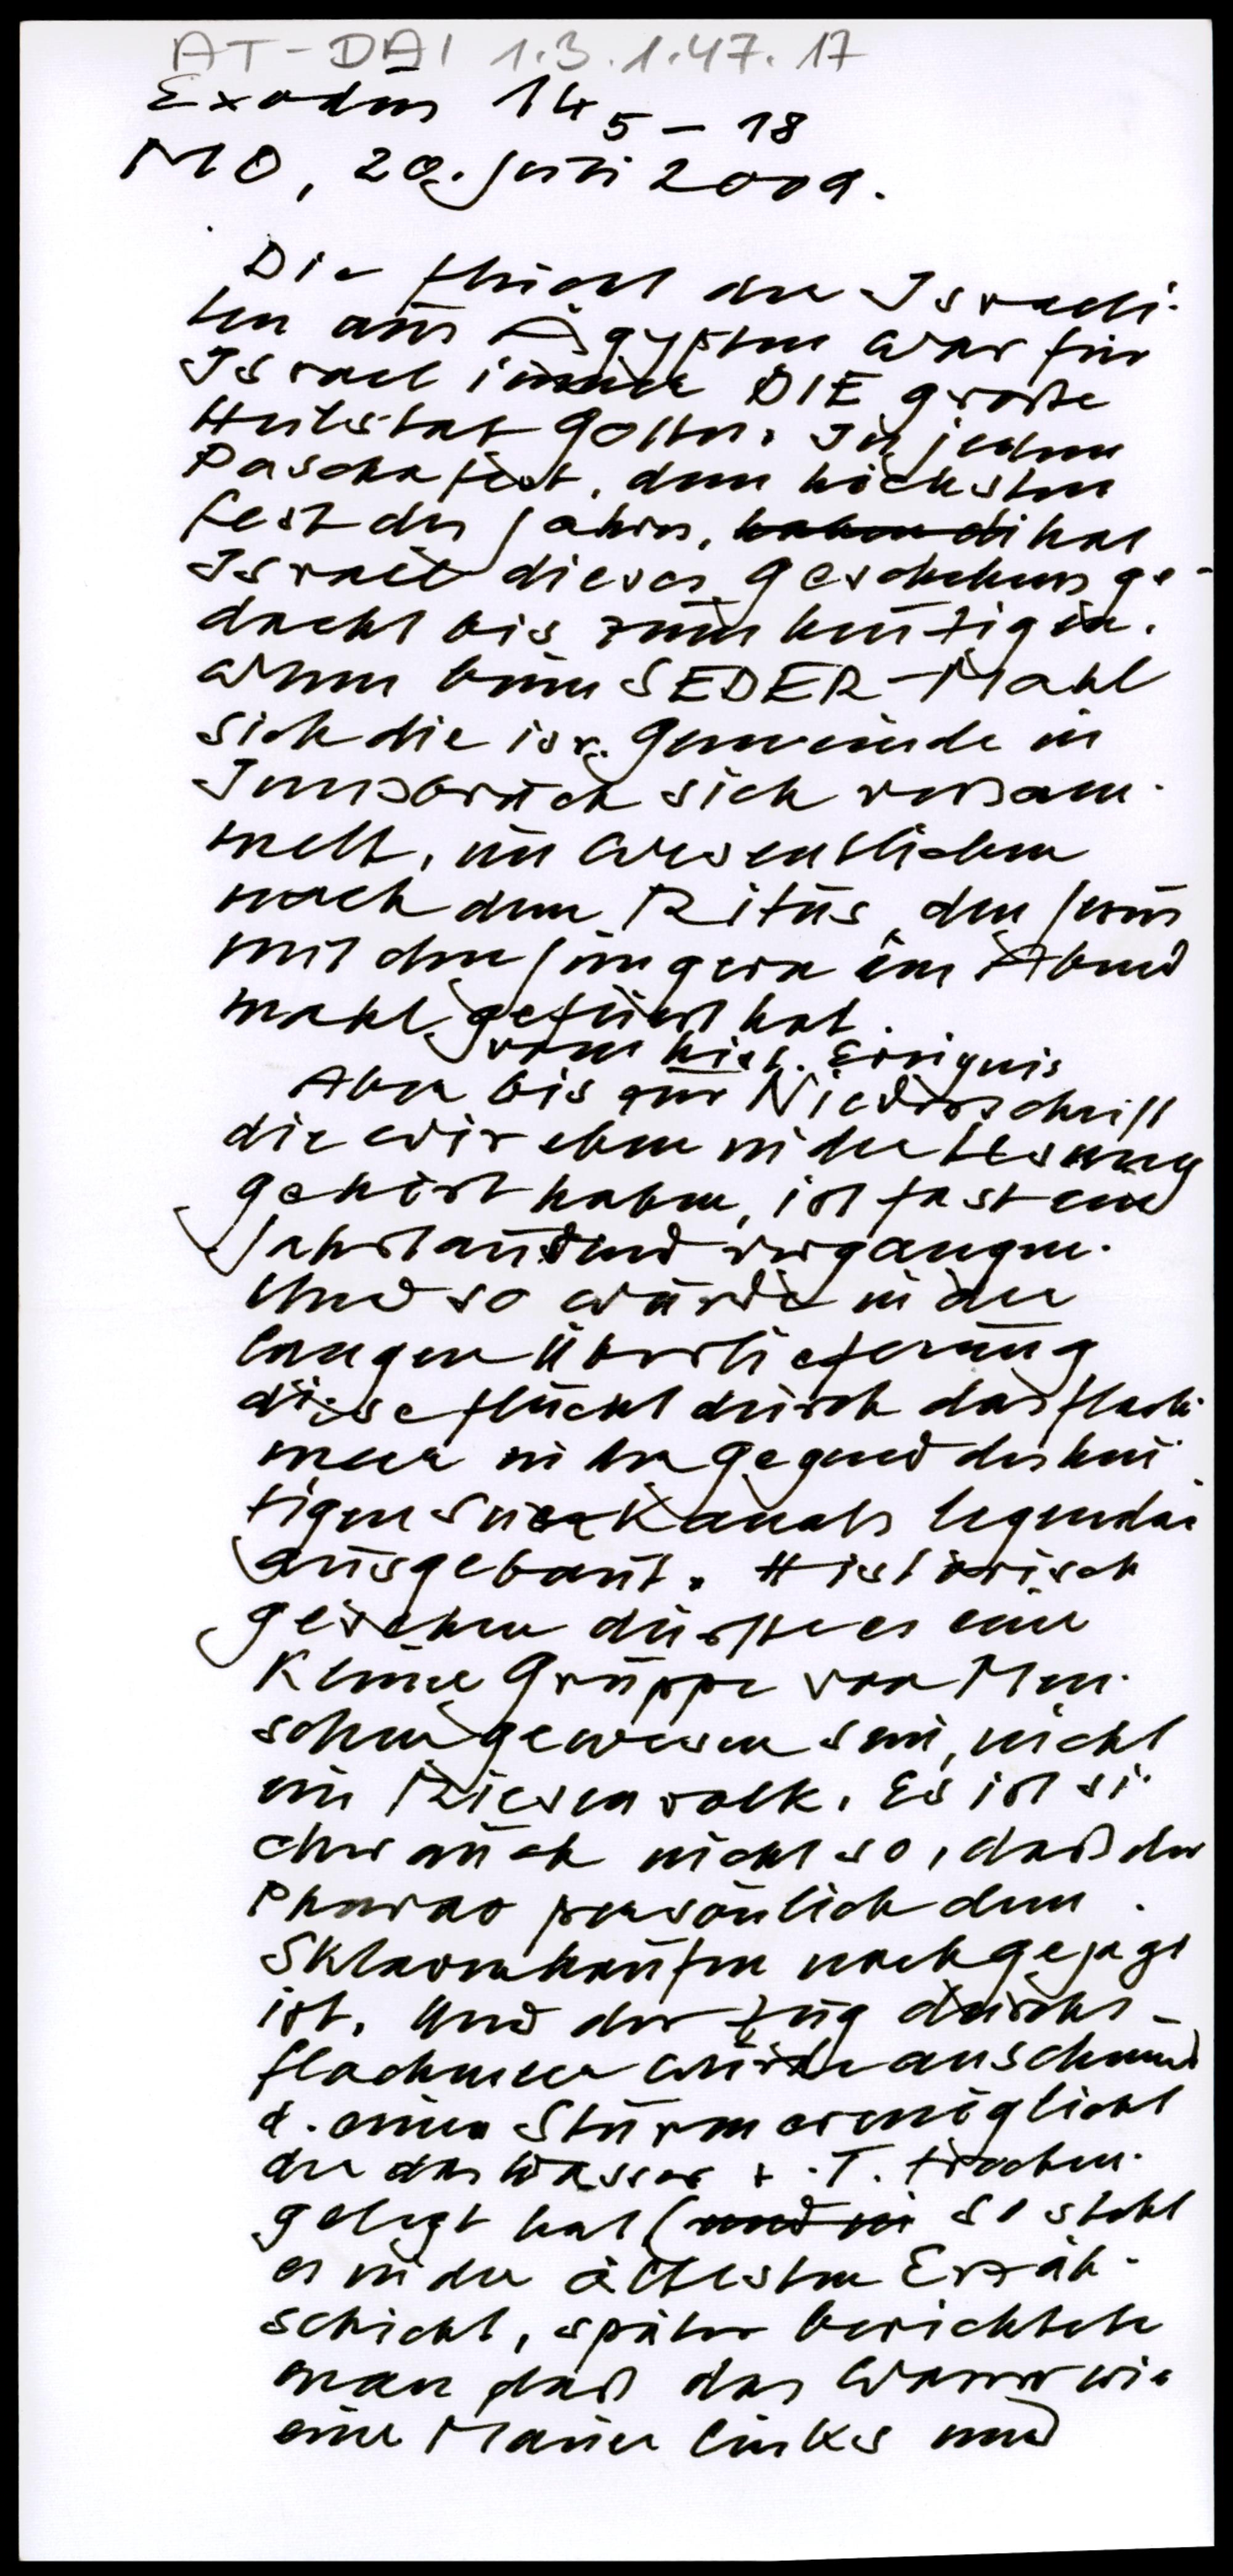 AT-DAI 1.3.1.47.17
Exodus 14 5-18
MO, 20. Juli 2009.
Die Flucht der Israeli-
ten aus Ägypten war für
Israel immer DIE große
Heilstat Gottes. In jedem
Paschafest, dem höchsten
Fest des Jahres, haben di hat
Israel dieses Geschehens ge-
dacht bis zum heutigen.
Wenn beim SEDER-Mahl
sich die isr. Gemeinde in
Innsbruck sich versam-
melt, im Wesentlichen
nach dem Ritus, den Jesus
mit den Jüngern im Abend
mahl gefeiert hat.
vom hist. Ereignis
Aber bis zur Niederschrift
die wir eben in der Lesung
gehört haben, ist fast ein
Jahrtausend vergangen.
Und so wurde in der
langen Überlieferung
diese Flucht durch das flache
Meer in der Gegend des heu-
tigen Suezkanals legendär
ausgebaut. Historisch
gesehen dürfte es eine
kleine Gruppe von Men-
schen gewesen sein, nicht
ein Riesenvolk. Es ist si-
cher auch nicht so, daß der
Pharao persönlich dem
Sklavenhaufen nachgejagt
ist. Und der Zug durchs
Flachmeer wurde anscheinend
d. einen Sturm ermöglicht
der das Wasser z.T. trocken-
gelegt hat (und in so steht
es in der ältesten Erzäh-
schicht, später berichtete
man daß das Wasser wie
eine Mauer links und